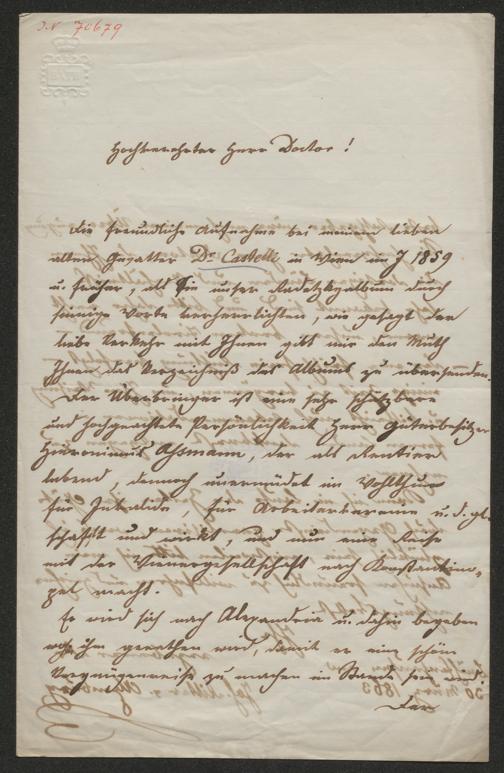 J.N. 70679
BATH
Hochverehrter Herr Doctor!
Die freundliche Aufnahme bei meinem lieben
alten Gevatter Dr Castelli in Wien im J 1859
u. früher, als Sie unser Radetzkyalbum durch
sinnige Worte verherrlichten, wie gesagt der
liebe Verkehr mit Ihnen gibt mir den Muth
Ihnen das Verzeichniß des Albums zu übersenden.
Der Überbringer ist eine sehr schätzbare
und hochgeachtete Persönlichkeit Herr Güterbesitzer
Hieronimus Assmann, der als Rentier
lebend, dennoch unermüdet im Wohlthun
für Invalide, für Arbeitervereine u. d. gl.
schafft und wirkt, und nun eine Reise
mit der Wienergesellschaft nach Konstantin-
pel macht.
Er wird sich nach Alexandria u. dahin begeben
wozu ihm gerathen wird, damit er eine schöne
Vergnügenreise zu machen im Stande sein wird.
Der